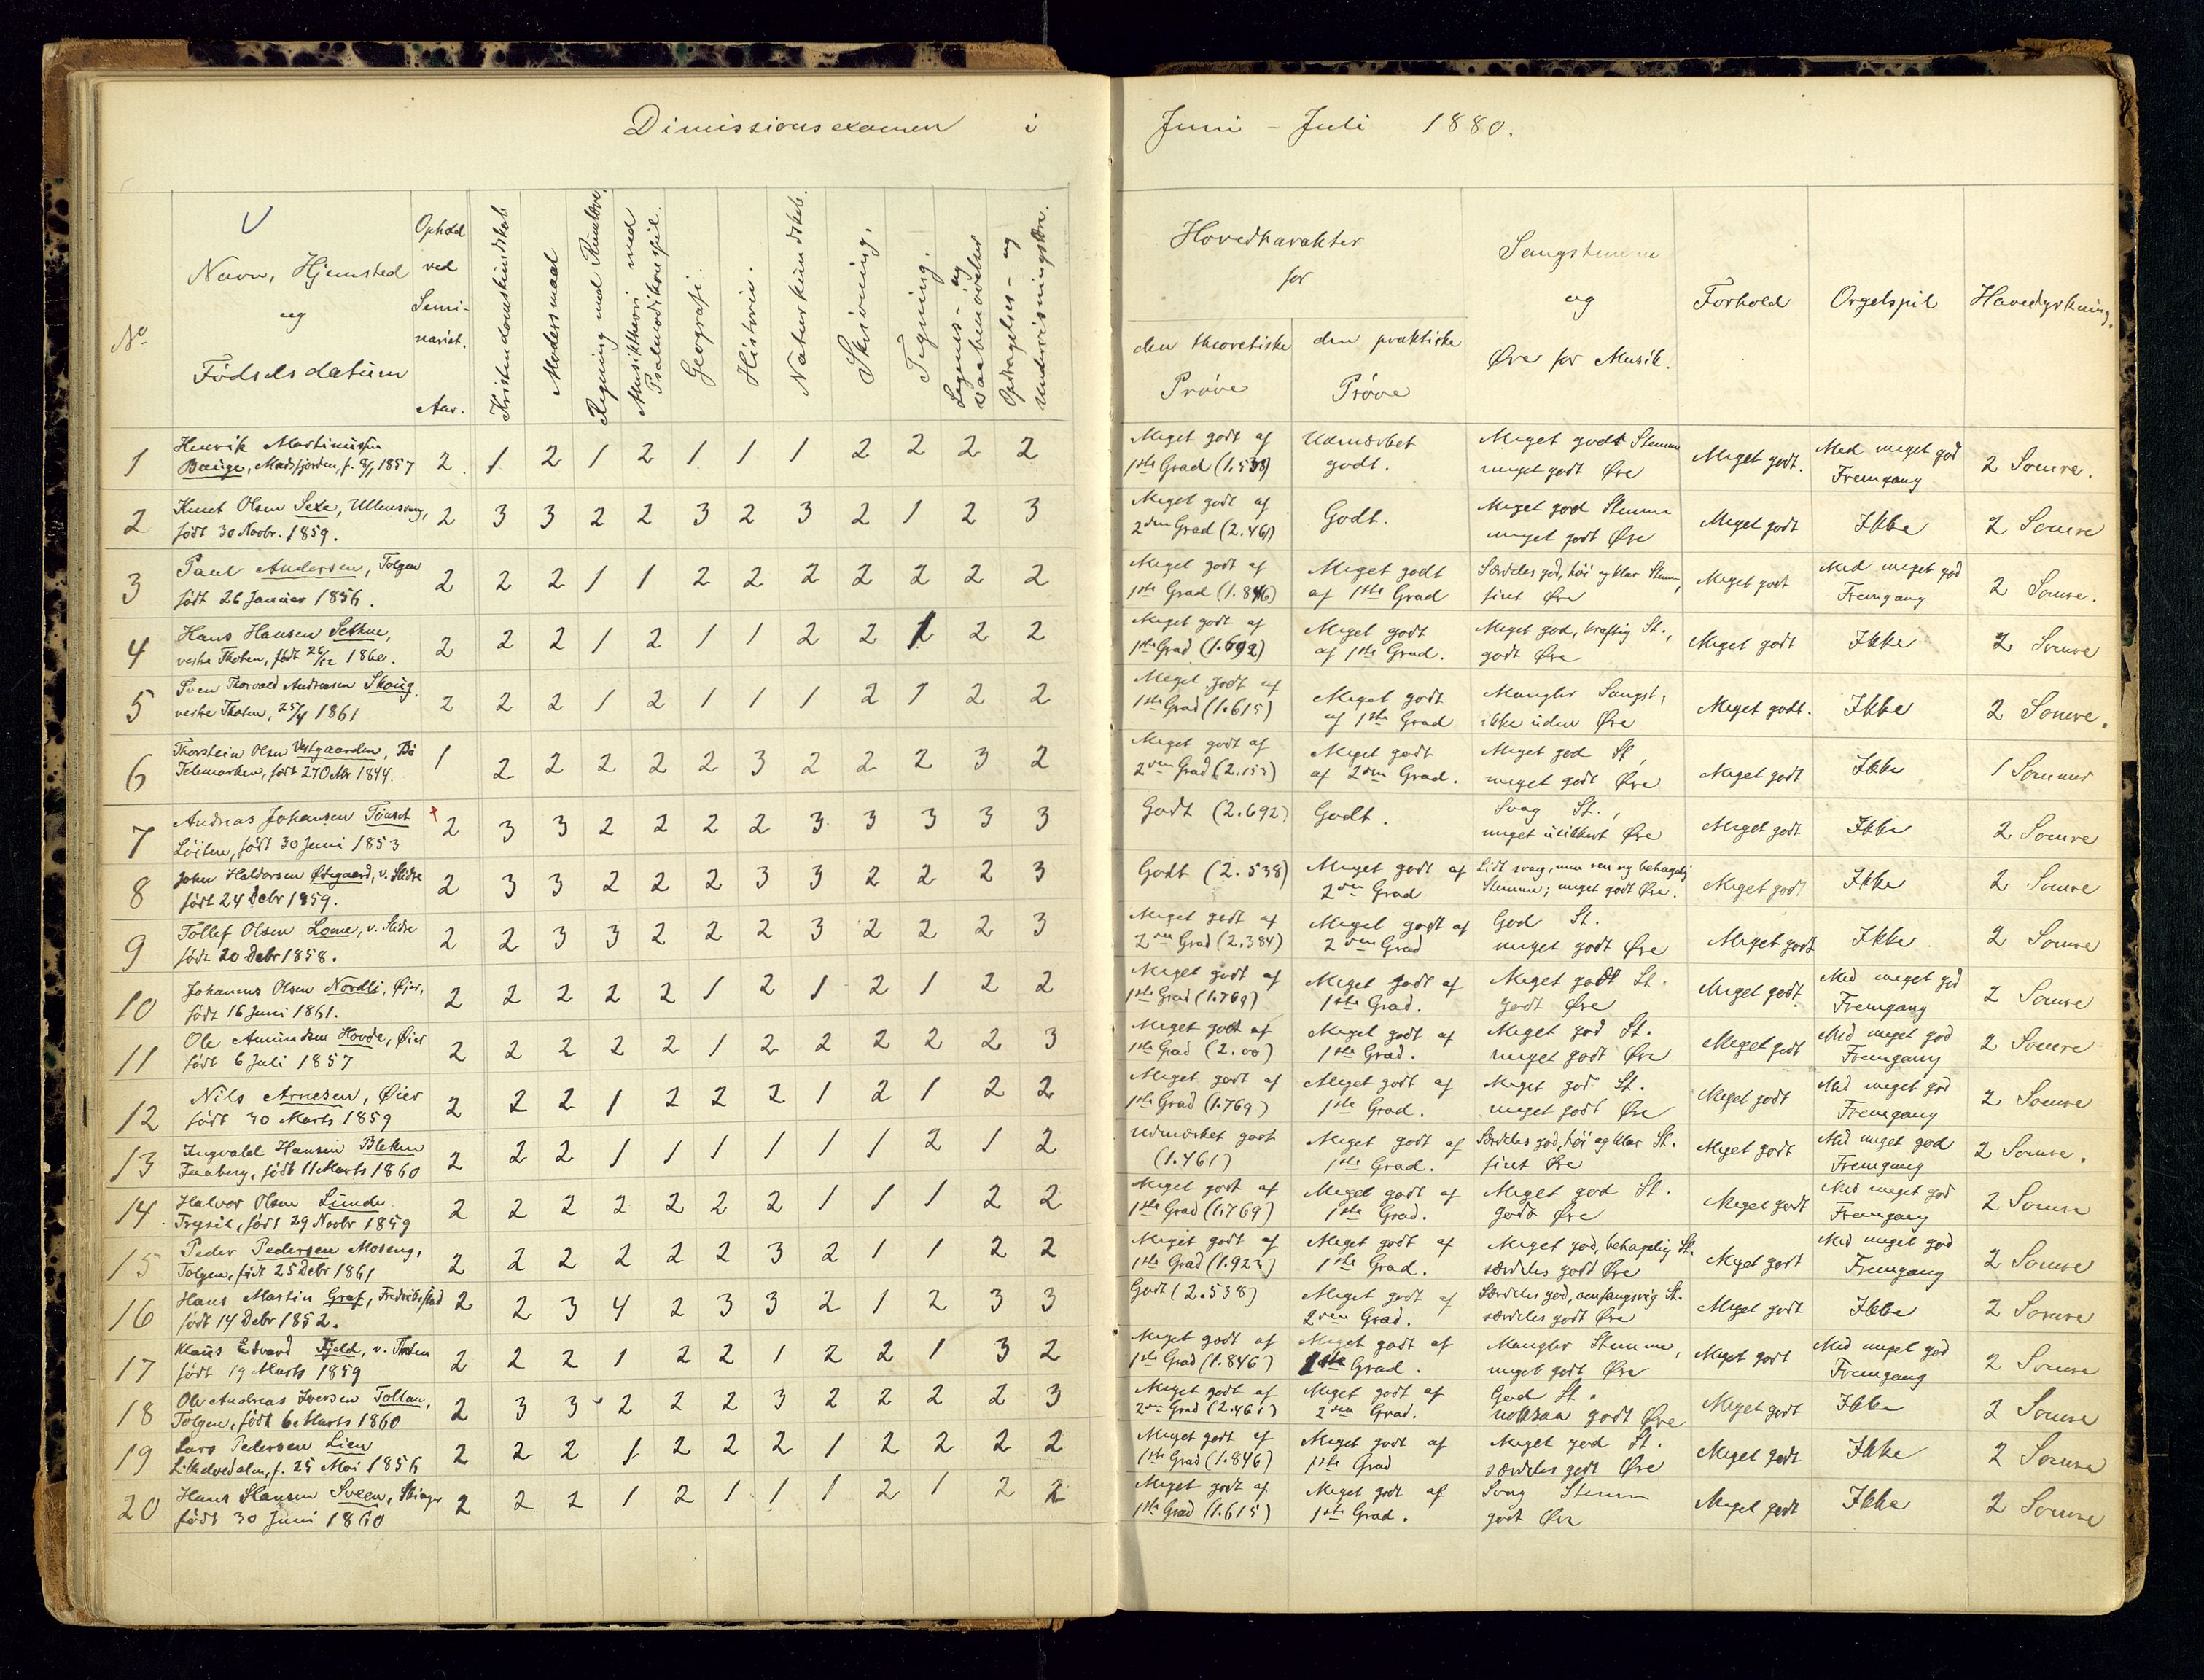 Dimissionsexamen i Juni - Juli 1880.
No
Navn, Hjemsted
og
Födselsdatum
Ophold
ved
Semi-
nariet.
Aar.
Kristendomskundskab
Modersmaal
Regning med Rumlære.
Musiktheori med
Psalmodikonspil.
Geografi.
Historie.
Naturkundskab.
Skrivning.
Tegning.
Legems- og
Vaabenövelser
Opdragelses- og
Undervisningslære.
Hovedkarakter
for
den theoretiske
Pröve
den praktiske
Pröve
Sangstemme
og
Øre for Musik.
Forhold
Orgelspil
Havedyrkning.
1 Henrik Martinussen 2 1 2 1 2 1 1 1 2 2 2 2 Meget godt af Udmærket Meget godt Stemme Meget godt. Med meget god 2 Somre.
Bauge, Madsfjorden, f. 1857 1ste Grad (1.538) godt. meget godt Øre Fremgang
2 Knut Olsen Sexe, Ullensvang, 2 3 3 2 2 3 2 3 2 1 2 3 Meget godt af Godt. Meget god Stemme Meget godt Ikke 2 Somre
födt 30 Novbr. 1859. 2den Grad (2.461) meget godt Øre
3 Paul Andersen, Tolgen 2 2 2 1 1 2 2 2 2 2 2 2 Meget godt af Meget godt Særdeles god, höi og klar Stemme, Meget godt Med meget god 2 Somre.
födt 26 Januar 1856. 1ste Grad (1.846) af 1ste Grad fint Øre Fremgang
4 Hans Hansen Sethne, 2 2 2 1 2 1 1 2 2 1 2 2 Meget godt af Meget godt Meget god, kraftig St., Meget godt Ikke 2 Somre
vestre Thoten, födt 26/12 1860. 1ste Grad (1.692) af 1ste Grad. godt Øre
5 Sven Thorvald Andreasen Skoug. 2 2 2 1 2 1 1 1 2 1 2 2 Meget godt af Meget godt Mangler Sangst; Meget godt. Ikke 2 Somre.
vestre Thoten, 25/4 1861 1ste Grad (1.615) af 1ste Grad ikke uden Øre
6 Thorstein Olsen Vestgaarden, Bö 1 2 2 2 2 2 3 2 2 2 3 2 Meget godt af Meget godt Meget god St, Meget godt Ikke 1 Sommer
Telemarken, födt 27 Okbr 1844. 2den Grad (2.153) af 2den Grad. meget godt Øre
7 Andreas Johansen Tönset 2 3 3 2 2 2 2 3 3 3 3 3 Godt (2.692) Godt. Svag St., Meget godt Ikke 2 Somre
Löiten, födt 30 Juni 1853 meget usikkert Øre
8 John Haldorsen Ødegaard, v. Slidre 2 3 3 2 2 2 3 3 2 2 2 3 Godt (2.538) Meget godt af Lidt svag, men ren og behagelig Meget godt Ikke 2 Somre
födt 24 Debr 1859. 2den Grad Stemme; meget godt Øre.
9 Tollef Olsen Lome, v. Slidre 2 2 3 3 2 2 2 3 2 2 2 3 Meget godt af Meget godt af God St. Meget godt Ikke 2 Somre
födt 20 Debr 1858. 2den Grad (2.384) 2den Grad meget godt Øre
10 Johannes Olsen Nordli, Øier, 2 2 2 2 2 1 2 1 2 1 2 2 Meget godt af Meget godt af Meget godt St. Meget godt. Med meget god 2 Somre
födt 16 Juni 1861. 1ste Grad (1.769) 1ste Grad. godt Øre Fremgang
11 Ole Amundsen Hovde, Øier 2 2 2 2 2 1 2 2 2 2 2 3 Meget godt af Meget godt af Meget god St. Meget godt Med meget god 2 Somre
födt 6 Juli 1857 1ste Grad (2.00) 1ste Grad. meget godt Øre Fremgang
12 Nils Arnesen, Øier 2 2 2 1 2 2 2 1 2 1 2 2 Meget godt af Meget godt af Meget god St. Meget godt Med meget god 2 Somre
födt 30 Marts 1859 1ste Grad (1.769) 1ste Grad. meget godt Øre Fremgang
13 Ingvald Hansen Bleken 2 2 2 1 1 1 1 1 1 2 1 2 Udmærket godt Meget godt af Særdeles god, höi og klar St. Meget godt Med meget god 2 Somre.
Faaberg, födt 11 Marts 1860 (1.461) 1ste Grad. fint Øre Fremgang
14. Halvor Olsen Lunde 2 2 2 2 2 2 2 1 1 1 2 2 Meget godt af Meget godt af Meget god St. Meget godt Med meget god 2 Somre
Trysil, födt 29 Novbr 1859 1ste Grad (1.769) 1ste Grad. godt Øre Fremgang
15 Peder Pedersen Moseng, 2 2 2 2 2 2 3 2 1 1 2 2 Meget godt af Meget godt af Meget god, behagelig St. Meget godt Med meget god 2 Somre
Tolgen, födt 25 Debr 1861 1ste Grad (1.923) 1ste Grad. særdeles godt Øre Fremgang
16 Hans Martin Graf, Fredrikstad 2 2 3 4 2 3 3 2 1 2 3 3 Godt (2.538) Meget godt af Særdeles god, omfangsrig St. Meget godt Ikke 2 Somre
födt 14 Debr 1852. 2den Grad. særdeles godt Øre
17 Klaus Edvard Fjeld, v. Thoten 2 2 2 1 2 2 1 2 2 1 3 2 Meget godt af Meget godt af Mangler Stemme, Meget godt Med meget god 2 Somre
födt 19 Marts 1859 1ste Grad (1.846) 1ste Grad. meget godt Øre Fremgang
18 Ole Andreas Iversen Tollan, 2 3 3 2 2 2 3 2 2 2 2 3 Meget godt af Meget godt af God St. Meget godt Ikke 2 Somre
Tolgen, födt 6 Marts 1860 2den Grad (2.461) 2den Grad. noksaa godt Øre
19 Lars Pedersen Lien 2 2 2 1 2 2 2 1 2 2 2 2 Meget godt af Meget godt af Meget god St. Meget godt Ikke 2 Somre
Litleelvedalen, f. 25 Mai 1856 1ste Grad (1.846) 1ste Grad særdeles godt Øre
20 Hans Hansen Sveen, Skiager 2 2 2 1 2 1 1 1 2 1 2 2 Meget godt af Meget godt af Svag Stemme Meget godt Ikke 2 Somre
födt 30 Juni 1860 1ste Grad (1.615) 1ste Grad. godt Øre